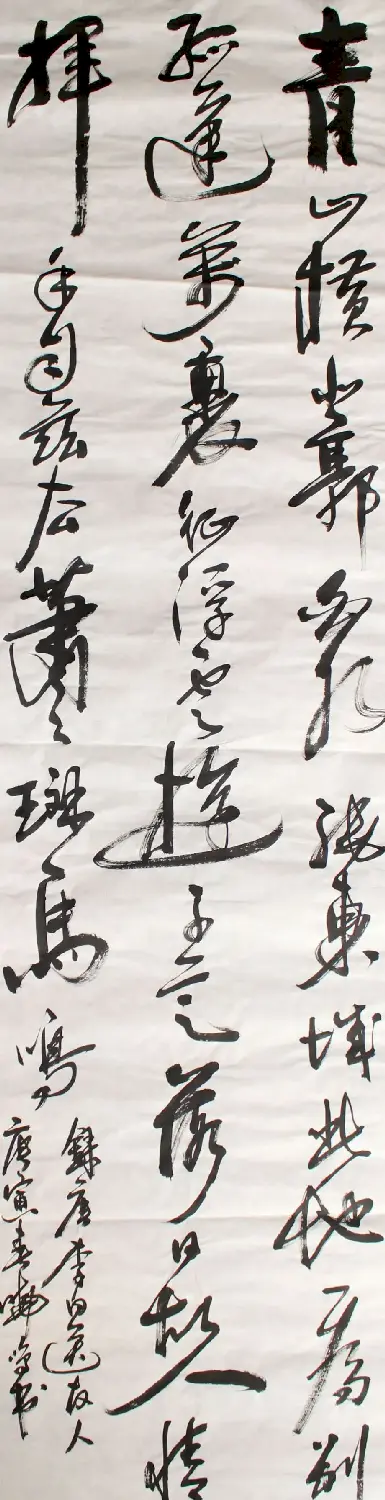 青山橫北郭白水繞東城此地一為別
孤蓬萬裏征浮雲遊子意落日故人情
揮手自茲去蕭々班馬鳴
錄唐李白送友人
庚寅春書